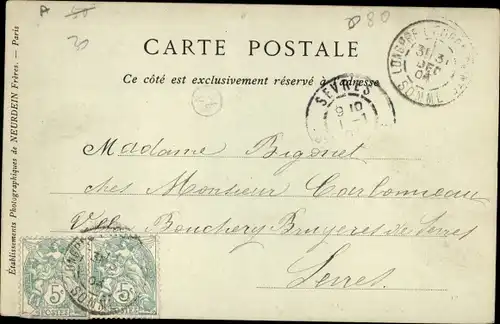 A 50
30
80
CARTE POSTALE
Ce côté est exclusivement réservé à l'adresse
LONGPRÉ
31
DEC
04
SOMME
SEVRES
9 10
1 -1
Madame Bigonet
chez Monsieur Carbonneau
Villa Bouchery Bruyeres de Sevres
Sevres
5 5
POSTES POSTES
SOMME
Établissements Photographiques de NEURDEIN Frères. — Paris